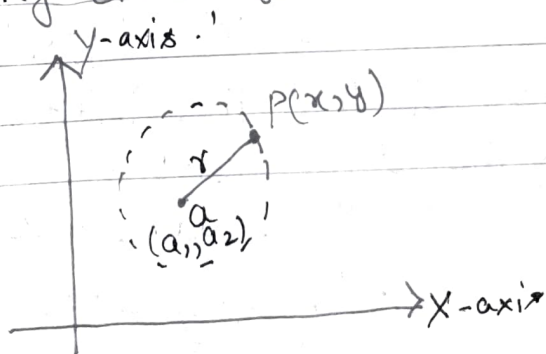 y-axis
P(x,y)
r
a
(a₁,a₂)
X-axis